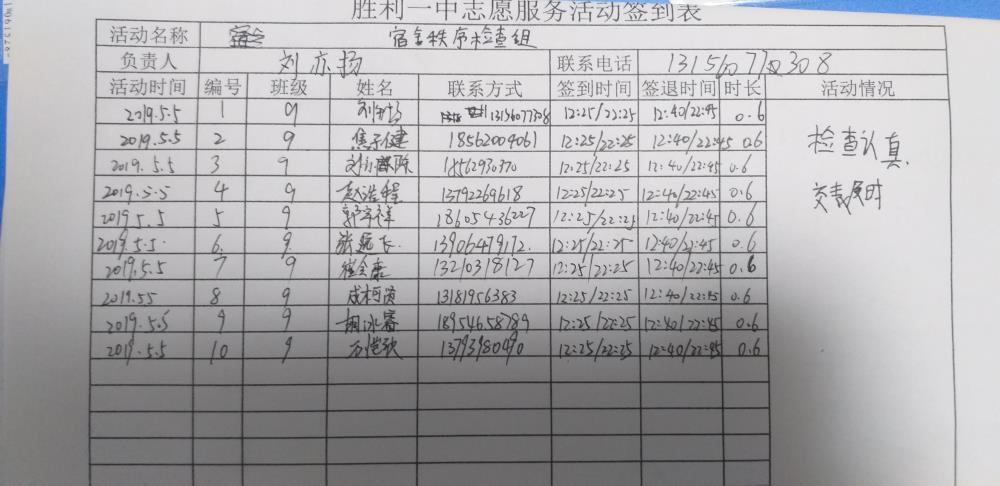 胜利一中志愿服务活动签到表
活动名称 宿舍秩序检查组
负责人 刘亦扬 联系电话
活动时间 编号 班级 姓名 联系方式 签到时间 签退时间 时长 活动情况
2019.5.5 1 9 12:25/22:25 12:40/22:45 0.6
2019.5.5 2 9 焦子健 18562004061 12:25/22:25 12:40/22:45 0.6 检查认真
2019.5.5 3 9 12:25/22:25 12:40/22:45 0.6
2019.5.5 4 9 赵浩程 13792269618 12:25/22:25 12:40/22:45 0.6 交表及时
2019.5.5 5 9 18605436227 12:25/22:25 12:40/22:45 0.6
2019.5.5. 6. 9 13906479172. 12:25/22:25 12:40/22:45 0.6
2019.5.5 7 9 13210318127 12:25/22:25 12:40/22:45 0.6
2019.5.5 8 9 13181956383 12:25/22:25 12:40/22:45 0.6
2019.5.5 9 9 18954658789 12:25/22:25 12:40/22:45 0.6
2019.5.5 10 9 12:25/22:25 12:40/22:45 0.6